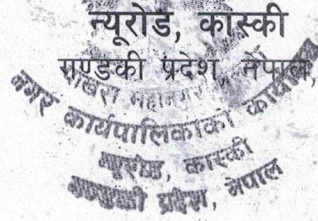 न्यूरोड, कास्की
गण्डकी प्रदेश, नेपाल,
पोखरा महानगर
नगर कार्यपालिकाको कार्यालय
न्यूरोड, कास्की
गण्डकी प्रदेश, नेपाल